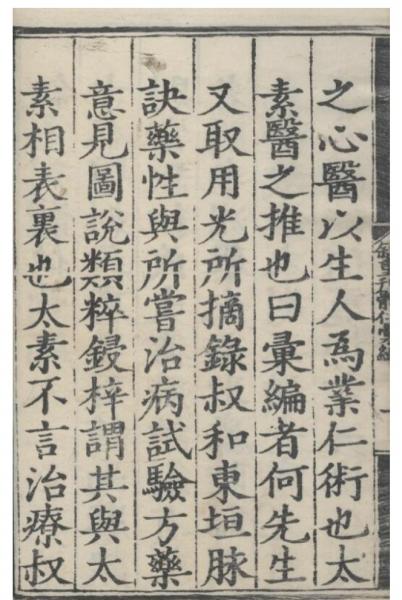 之心醫以生人爲業仁術也太
素醫之推也曰彙編者何先生
又取用光所摘錄叔和東垣脉
訣藥性與所嘗治病試驗方藥
意見圖說類粹鋟梓謂其與太
素相表裏也太素不言治療叔